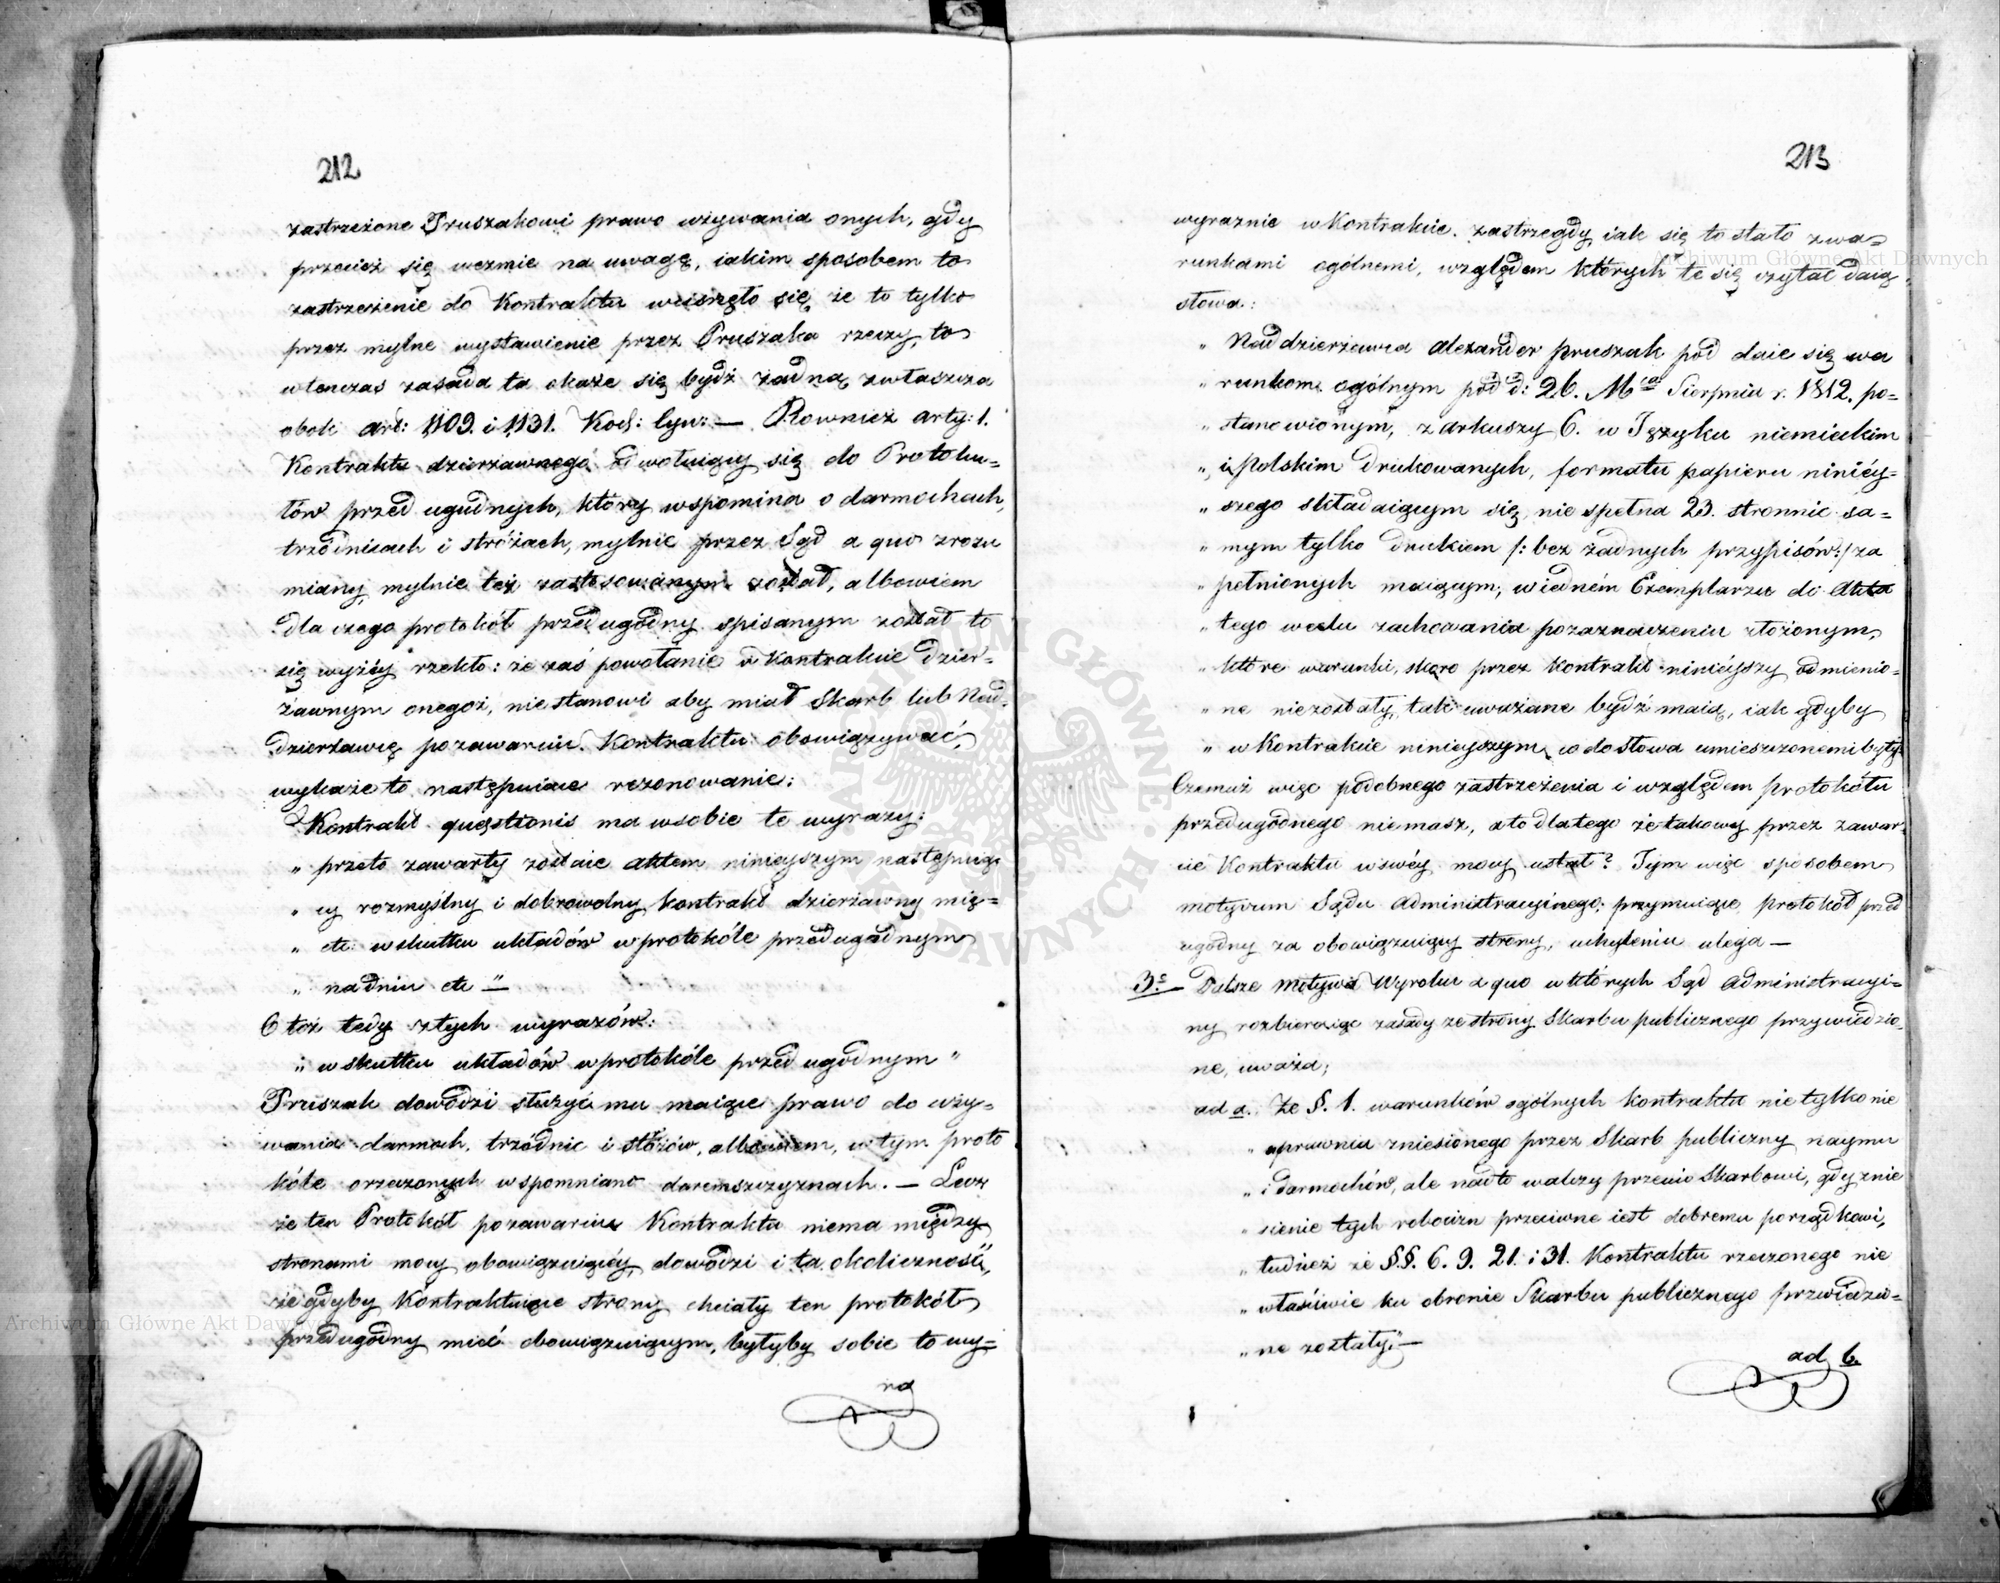 212
zastrzeżone Pruszakowi prawo używania onych, gdy
przecież się wezmie na uwagę, iakim sposobem to
zastrzeżenie do Kontraktu wcisnęło się, że to tylko
przez mylne wystawienie przez Pruszaka rzeczy, to
wtenczas zasada ta okaże się bydź żadną zwłaszcza
obok art: 1109. i 1131. Kod: Cyw: — Rownież arty: 1.
Kontraktu dzierżawnego odwołuiący się do Protoku=
łów przed ugodnych, który wspomina o darmochach,
trzódnicach i stróżach, mylnie przez Sąd a quo zrozu
miany, mylnie też zastosowanym został, albowiem
dla czego protokół przedugodny spisanym został to
się wyżéy rzekło: że zaś powołanie w Kontrakcie dzier=
żawnym onegoż, nie stanowi aby miał Skarb lub Nad
dzierżawcę po zawarciu Kontraktu obowiązywać,
wykaże to następuiące rezonowanie:
Kontrakt questionis ma w sobie te wyrazy:
„ przeto zawarty zostaie aktem ninieyszym następuią
„ cy rozmyślny i dobrowolny kontrakt dzierżawny mię=
„ etc: w skutku układów w protokóle przedugodnym
„ na dniu etc —"
Otoż tedy z tych wyrazów:
„ w skutku układów w protokóle przed ugodnym "
Pruszak dowodzi służyć mu maiące prawo do uży=
wania darmoch, trzódnic i stróżów, albowiem, w tym proto
kóle orzeczonych wspomniano daremszczyznach. — Lecz
że ten Protokół po zawarciu Kontraktu niema między
stronami mocy obowiązuiącéy, dowodzi i ta okoliczność,
że gdyby Kontraktuiące strony chciały ten protokół
przedugodny mieć obowiązuiącym, byłyby sobie to wy=
ra
213
wyraznie w Kontrakcie zastrzegły iak się to stało z wa=
runkami ogólnemi, względem których te się czytać daią
słowa:
„ Naddzierżawca Alexander Pruszak pod daie się wa
„ runkom ogólnym pod d: 26. Mca Sierpnia r. 1812. po=
„ stanowionym, z arkuszy 6. w Języku niemieckim
„ i Polskim drukowanych, formatu papieru niniéy=
„ szego składaiącym się, nie spełna 23. stronnic sa=
„ mym tylko drukiem /: bez żadnych przypisów:/ za
„ pełnionych maiącym, w iedném Exemplarzu do Akta
„ tego wcelu zachowania po zaznaczeniu złożonym,
„ które warunki, skoro przez Kontrakt niniéyszy odmienio=
„ ne niezostały, tak uważane bydź maią, iak gdyby
„ w Kontrakcie ninieyszym co do słowa umieszczonemi były
Czemuż więc podobnego zastrzeżenia i względem protokółu
przedugodnego niemasz, a to dlatego że takowy przez zawar=
cie Kontraktu w swéy mocy ustał? Tym więc sposobem
motywum Sądu Administracyinego, przymuiące protokół przed
ugodny za obowiązuiący strony, uchyleniu ulega —
3e. — Dalsze Motywa Wyroku a quo w których Sąd Administracyi=
ny rozbieraiąc zasady ze strony Skarbu publicznego przywiedzio=
ne, uważa;
ad a. Że §. 1. warunków ogólnych kontraktu nie tylko nie
„ uprawnia zniesionego przez Skarb publiczny naymu
„ i darmochów, ale nadto walczy przeciw Skarbowi, gdy znie
„ sienie tych robocizn przeciwne iest dobremu porządkowi,
„ tudzież że §§. 6. 9. 21. i 31. Kontraktu rzeczonego nie
„ właściwie ku obronie Skarbu publicznego przwiedzio=
„ ne zostały;" —
ad b.
Archiwum Główne Akt Dawnych
Archiwum Główne Akt Dawnych
ARCHIWUM GŁÓWNE AKT DAWNYCH